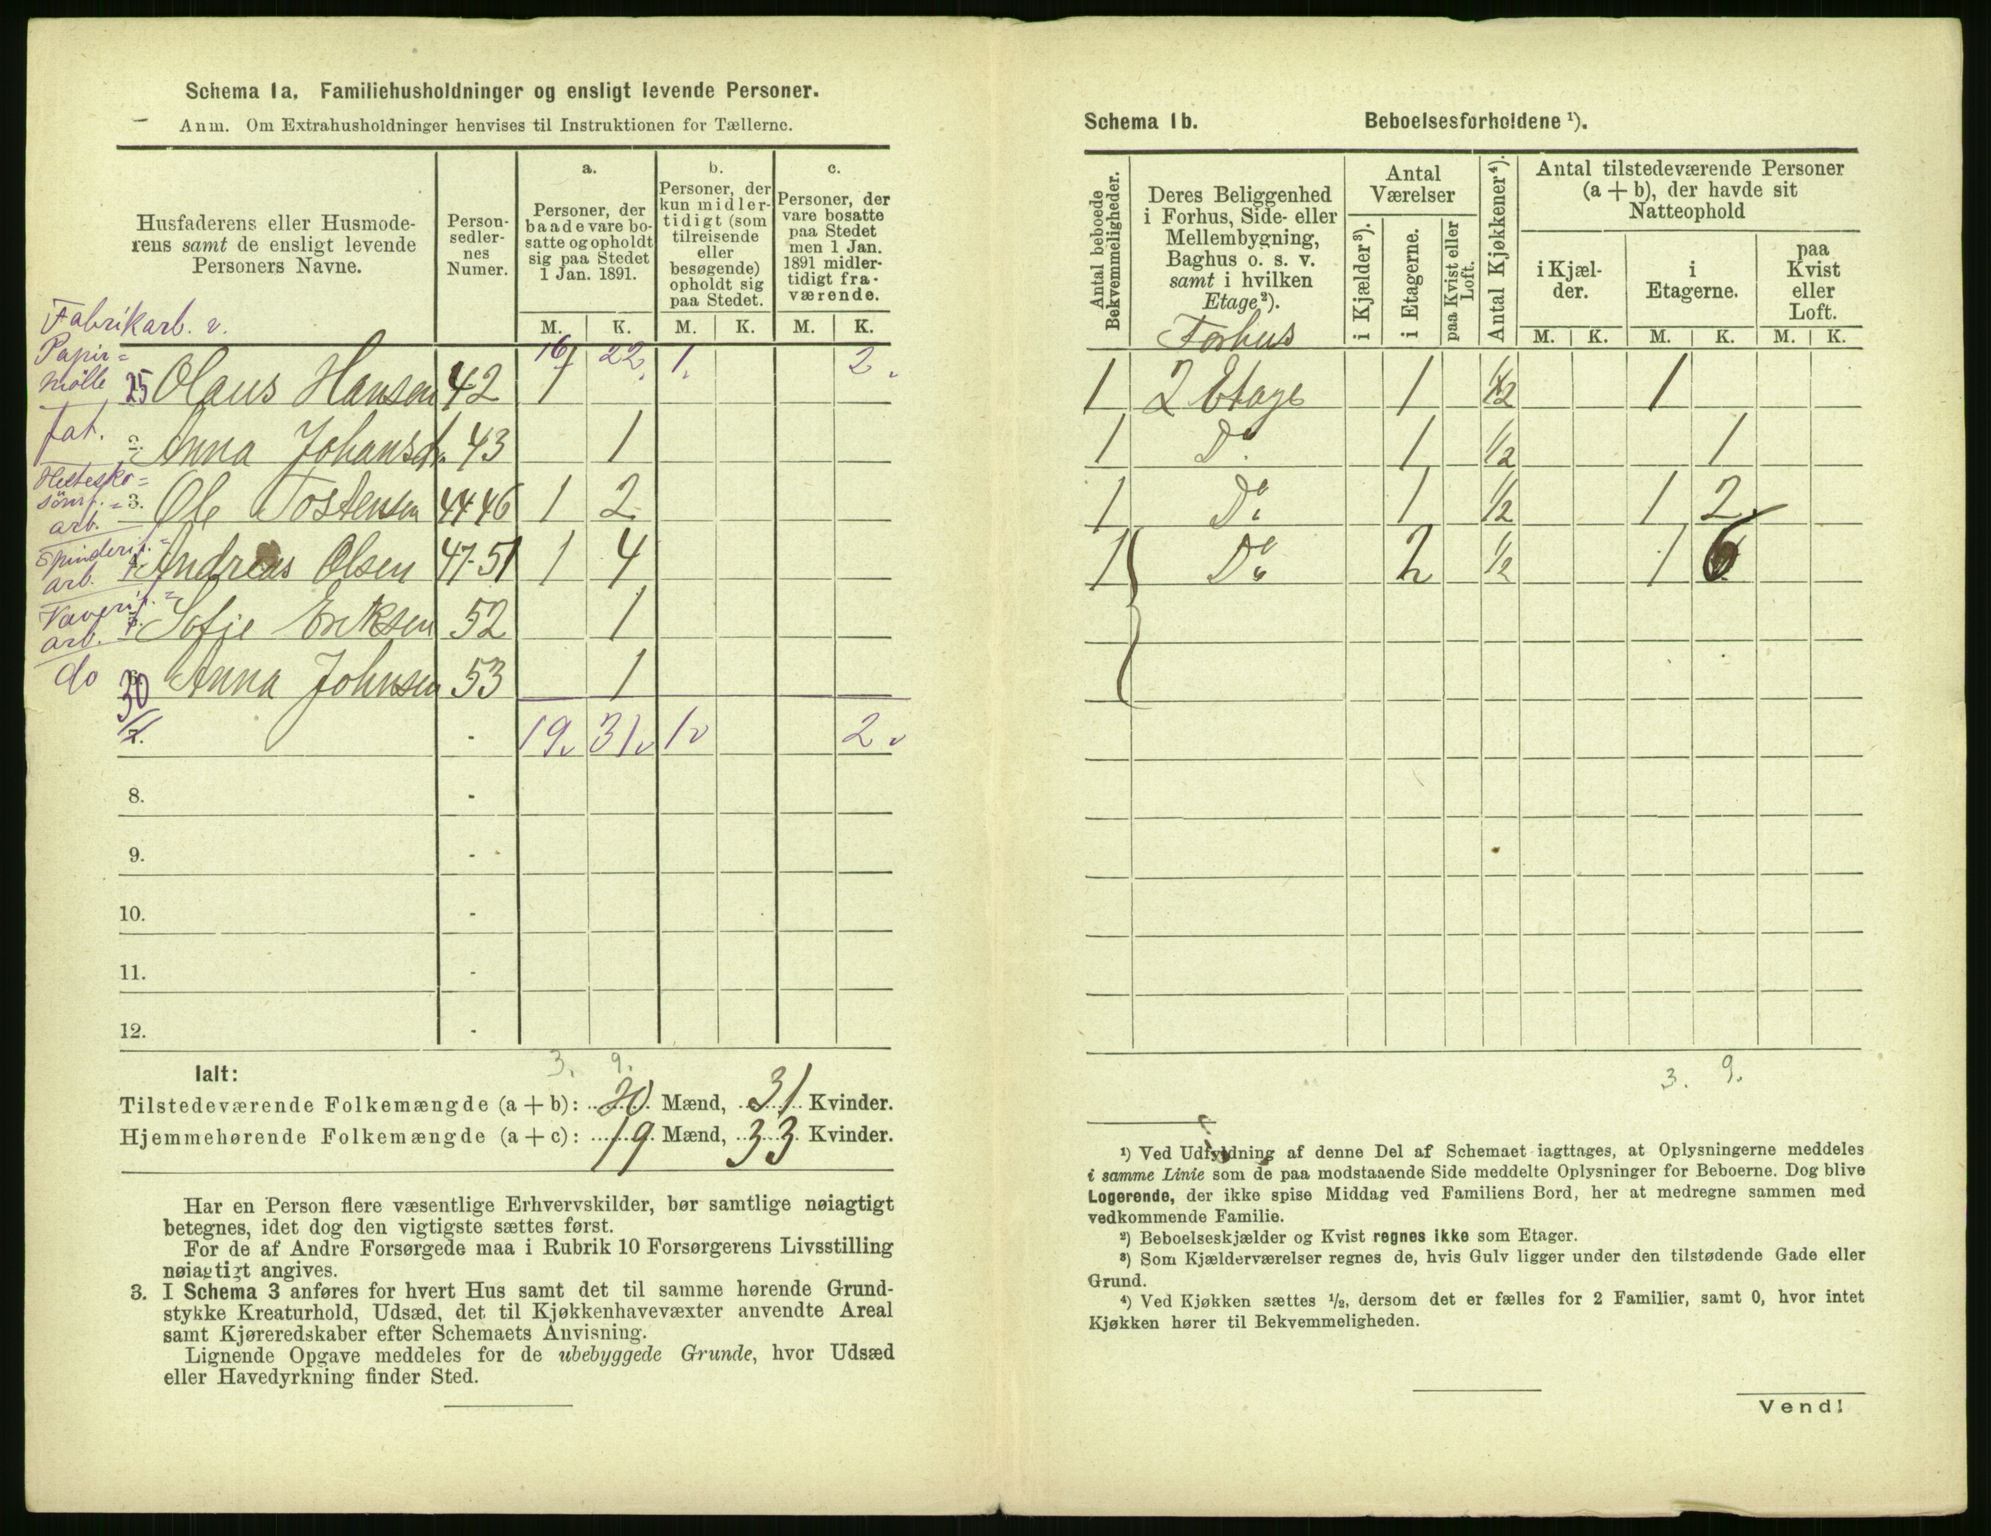 Schema 1a. Familiehusholdninger og ensligt levende Personer.
Anm. Om Extrahusholdninger henvises til Instruktionen for Tællerne.
Husfaderens eller Husmode-
rens samt de ensligt levende
Personers Navne.
Person-
sedler-
nes
Numer.
a.
Personer, der
baade vare bo-
satte og opholdt
sig paa Stedet
1 Jan. 1891.
b.
Personer, der
kun midler-
tidigt (som
tilreisende
eller
besøgende)
opholdt sig
paa Stedet.
c.
Personer, der
vare bosatte
paa Stedet
men 1 Jan.
1891 midler-
tidigt fra-
værende.
M. K. M. K. M. K.
Fabrikarb. v.
Papir=
mølle
16 22. 1. 2.
25 Olaus Hansen 42 1
Fat.
2. Anna Johansd. 43 1
Hestesko=
sömf.=
arb.
3. Ole Tostensen 44-46 1 2
Spinderi.=
arb.
4. Andreas Olsen 47-51 1 4
Væveri.=
arb.
5. Sofie Eriksen 52 1
do
30 Anna Johnsen 53 1
7. 19. 31. 1. 2.
8.
9.
10.
11.
12.
3. 9.
Ialt:
Tilstedeværende Folkemængde (a + b): 20 Mænd, 31 Kvinder.
Hjemmehørende Folkemængde (a + c): 19 Mænd, 33 Kvinder.
Har en Person flere væsentlige Erhvervskilder, bør samtlige nøiagtigt
betegnes, idet dog den vigtigste sættes først.
For de af Andre Forsørgede maa i Rubrik 10 Forsørgerens Livsstilling
nøiagtigt angives.
3. I Schema 3 anføres for hvert Hus samt det til samme hørende Grund-
stykke Kreaturhold, Udsæd, det til Kjøkkenhavevæxter anvendte Areal
samt Kjøreredskaber efter Schemaets Anvisning.
Lignende Opgave meddeles for de ubebyggede Grunde, hvor Udsæd
eller Havedyrkning finder Sted.
Schema 1b. Beboelsesforholdene ¹).
Antal beboede
Bekvemmeligheder.
Deres Beliggenhed
i Forhus, Side- eller
Mellembygning,
Baghus o. s. v.
samt i hvilken
Etage²).
Antal
Værelser
i Kjælder³).
i Etagerne.
paa Kvist eller
Loft.
Antal Kjøkkener⁴).
Antal tilstedeværende Personer
(a + b), der havde sit
Natteophold
i Kjæl-
der.
i
Etagerne.
paa
Kvist
eller
Loft.
M. K. M. K. M. K.
Forhus
1 2 Etage 1 1/2 1
1 Do. 1 1/2 1
1 Do. 1 1/2 1 2
1 Do. 2 1/2 1 6
3. 9.
¹) Ved Udfyldning af denne Del af Schemaet iagttages, at Oplysningerne meddeles
i samme Linie som de paa modstaaende Side meddelte Oplysninger for Beboerne. Dog blive
Logerende, der ikke spise Middag ved Familiens Bord, her at medregne sammen med
vedkommende Familie.
²) Beboelseskjælder og Kvist regnes ikke som Etager.
³) Som Kjælderværelser regnes de, hvis Gulv ligger under den tilstødende Gade eller
Grund.
⁴) Ved Kjøkken sættes ½, dersom det er fælles for 2 Familier, samt 0, hvor intet
Kjøkken hører til Bekvemmeligheden.
Vend!